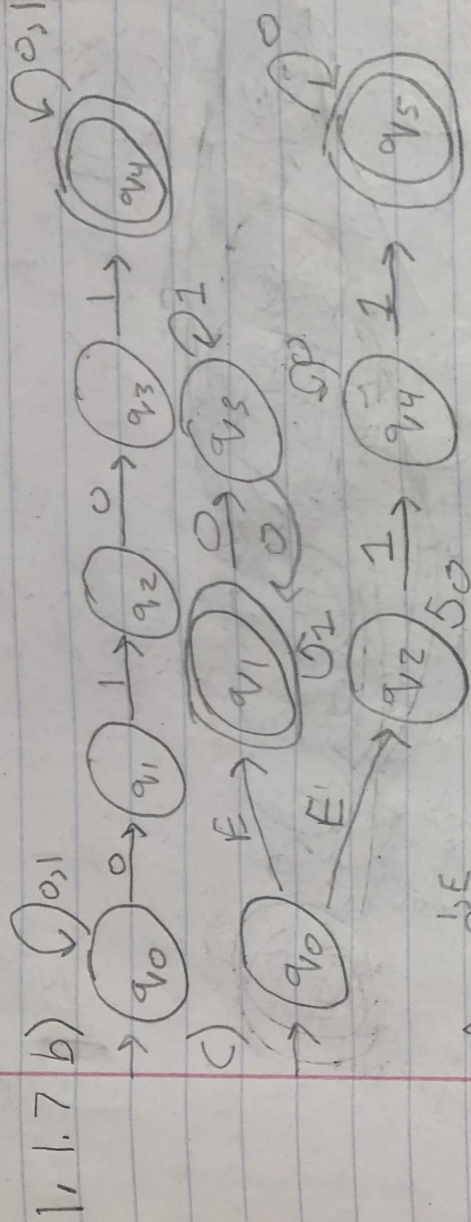 1, 1.7 b)
0,1
0,1
q0 0 q1 1 q2 0 q3 1 q4
c)
E q1 0 q3 1
0
1
q0
E q2 1 q4 1 q5
0
0
0
1,E